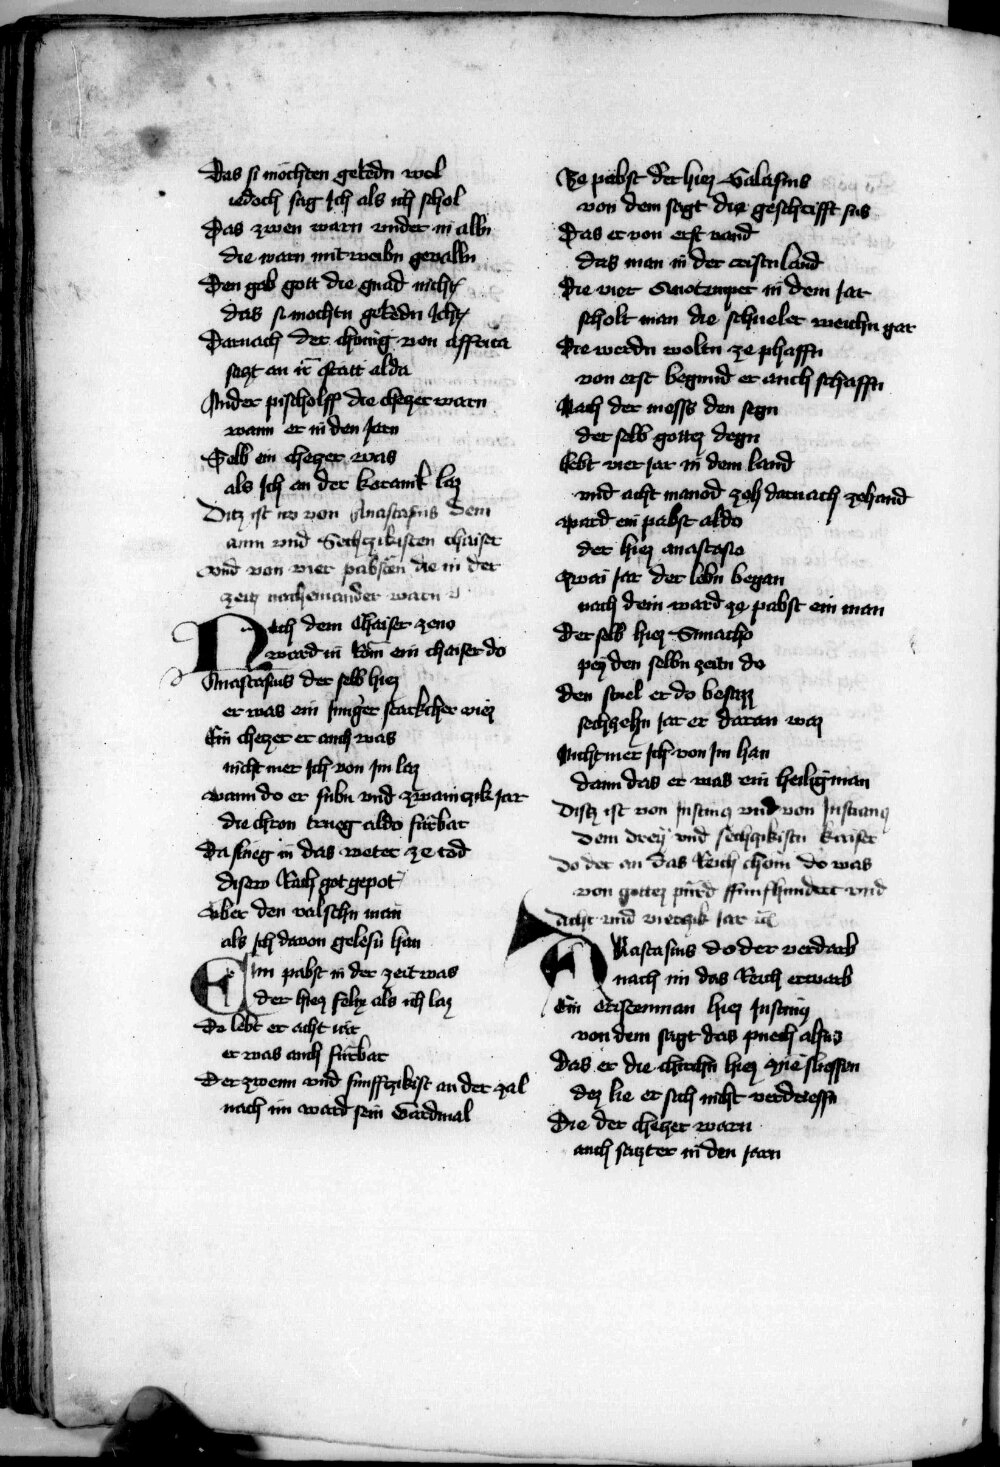 Das si mochten geredn wol
iedoch sag Ich als ich schol
Das zwen warn vnder in alln
die warn mit weibn gevalln
Den gab gott die gnad nicht
das si mochtn geredn Icht
Darnach der chunig von affrica
satzt an ir statt alda
Ander pischolff die chetzer warn
wann er in den Jarn
Selb ein chetzer was
als Ich an der koranik laz
Ditz ist no von Anastasius dem
ainn vnd Sechtzikisten chaiser
vnd von vier pabsten die in der
zeitt nacheinander warn
Nach dem Chaiser zeno
ward in Rom ein chaiser do
Anastasius der selb hiez
er was ein Junger starkcher riez
Ein chetzer er auch was
nicht mer Ich von Im laz
wann do er sibn vnd zwainczik Jar
die chron trueg aldo furbar
Da slueg in das weter ze tod
diserr Rach got gepot
vber den valschn man
als Ich davon gelesn han
Ein pabst in der zeit was
der hiez felix als ich laz
Do lebt er acht iar
er was auch furbar
Der zwenn vnd funfftzikist an der zal
nach im ward sein Cardinal
Ze pabst der hiez Galasius
von dem sagt die geschrifft sus
Das er von erst vand
das man in der cristnland
Die vier Quotemper in dem Jar
scholt man die schueler weichn gar
Die werdn woltn ze phaffn
von erst begund er auch schaffn
Nach der mess den segn
der selb gottez degn
Lebt vier Jar in dem land
vnd acht manod zoh darnach zehand
ward ein pabst aldo
der hiez anastasio
Zwai Jar der lebn began
nach dem ward ze pabst ein man
Der selb hiez Simacho
pey den selbn zeitn do
Den stuel er do besazz
sechzehn Jar er daran waz
Nicht mer Ich von Im han
dann das er was ein heilig man
Ditz ist von Justing vnd von Justiang
dem drey vnd sechzikistn kaiser
do der an das Reich chom do was
von gottez purd ffunfhundert vnd
Acht vnd viertzik Jar
Anastasius do der verdarb
nach im das Reich erwarb
Ein Cristenman hiez Justing
von dem sagt das puech alsus
Das er die chirchn hiez zue sliessen
dez lie er sich nicht verdriessn
Die der chetzer warn
auch satzt er in den Jarn